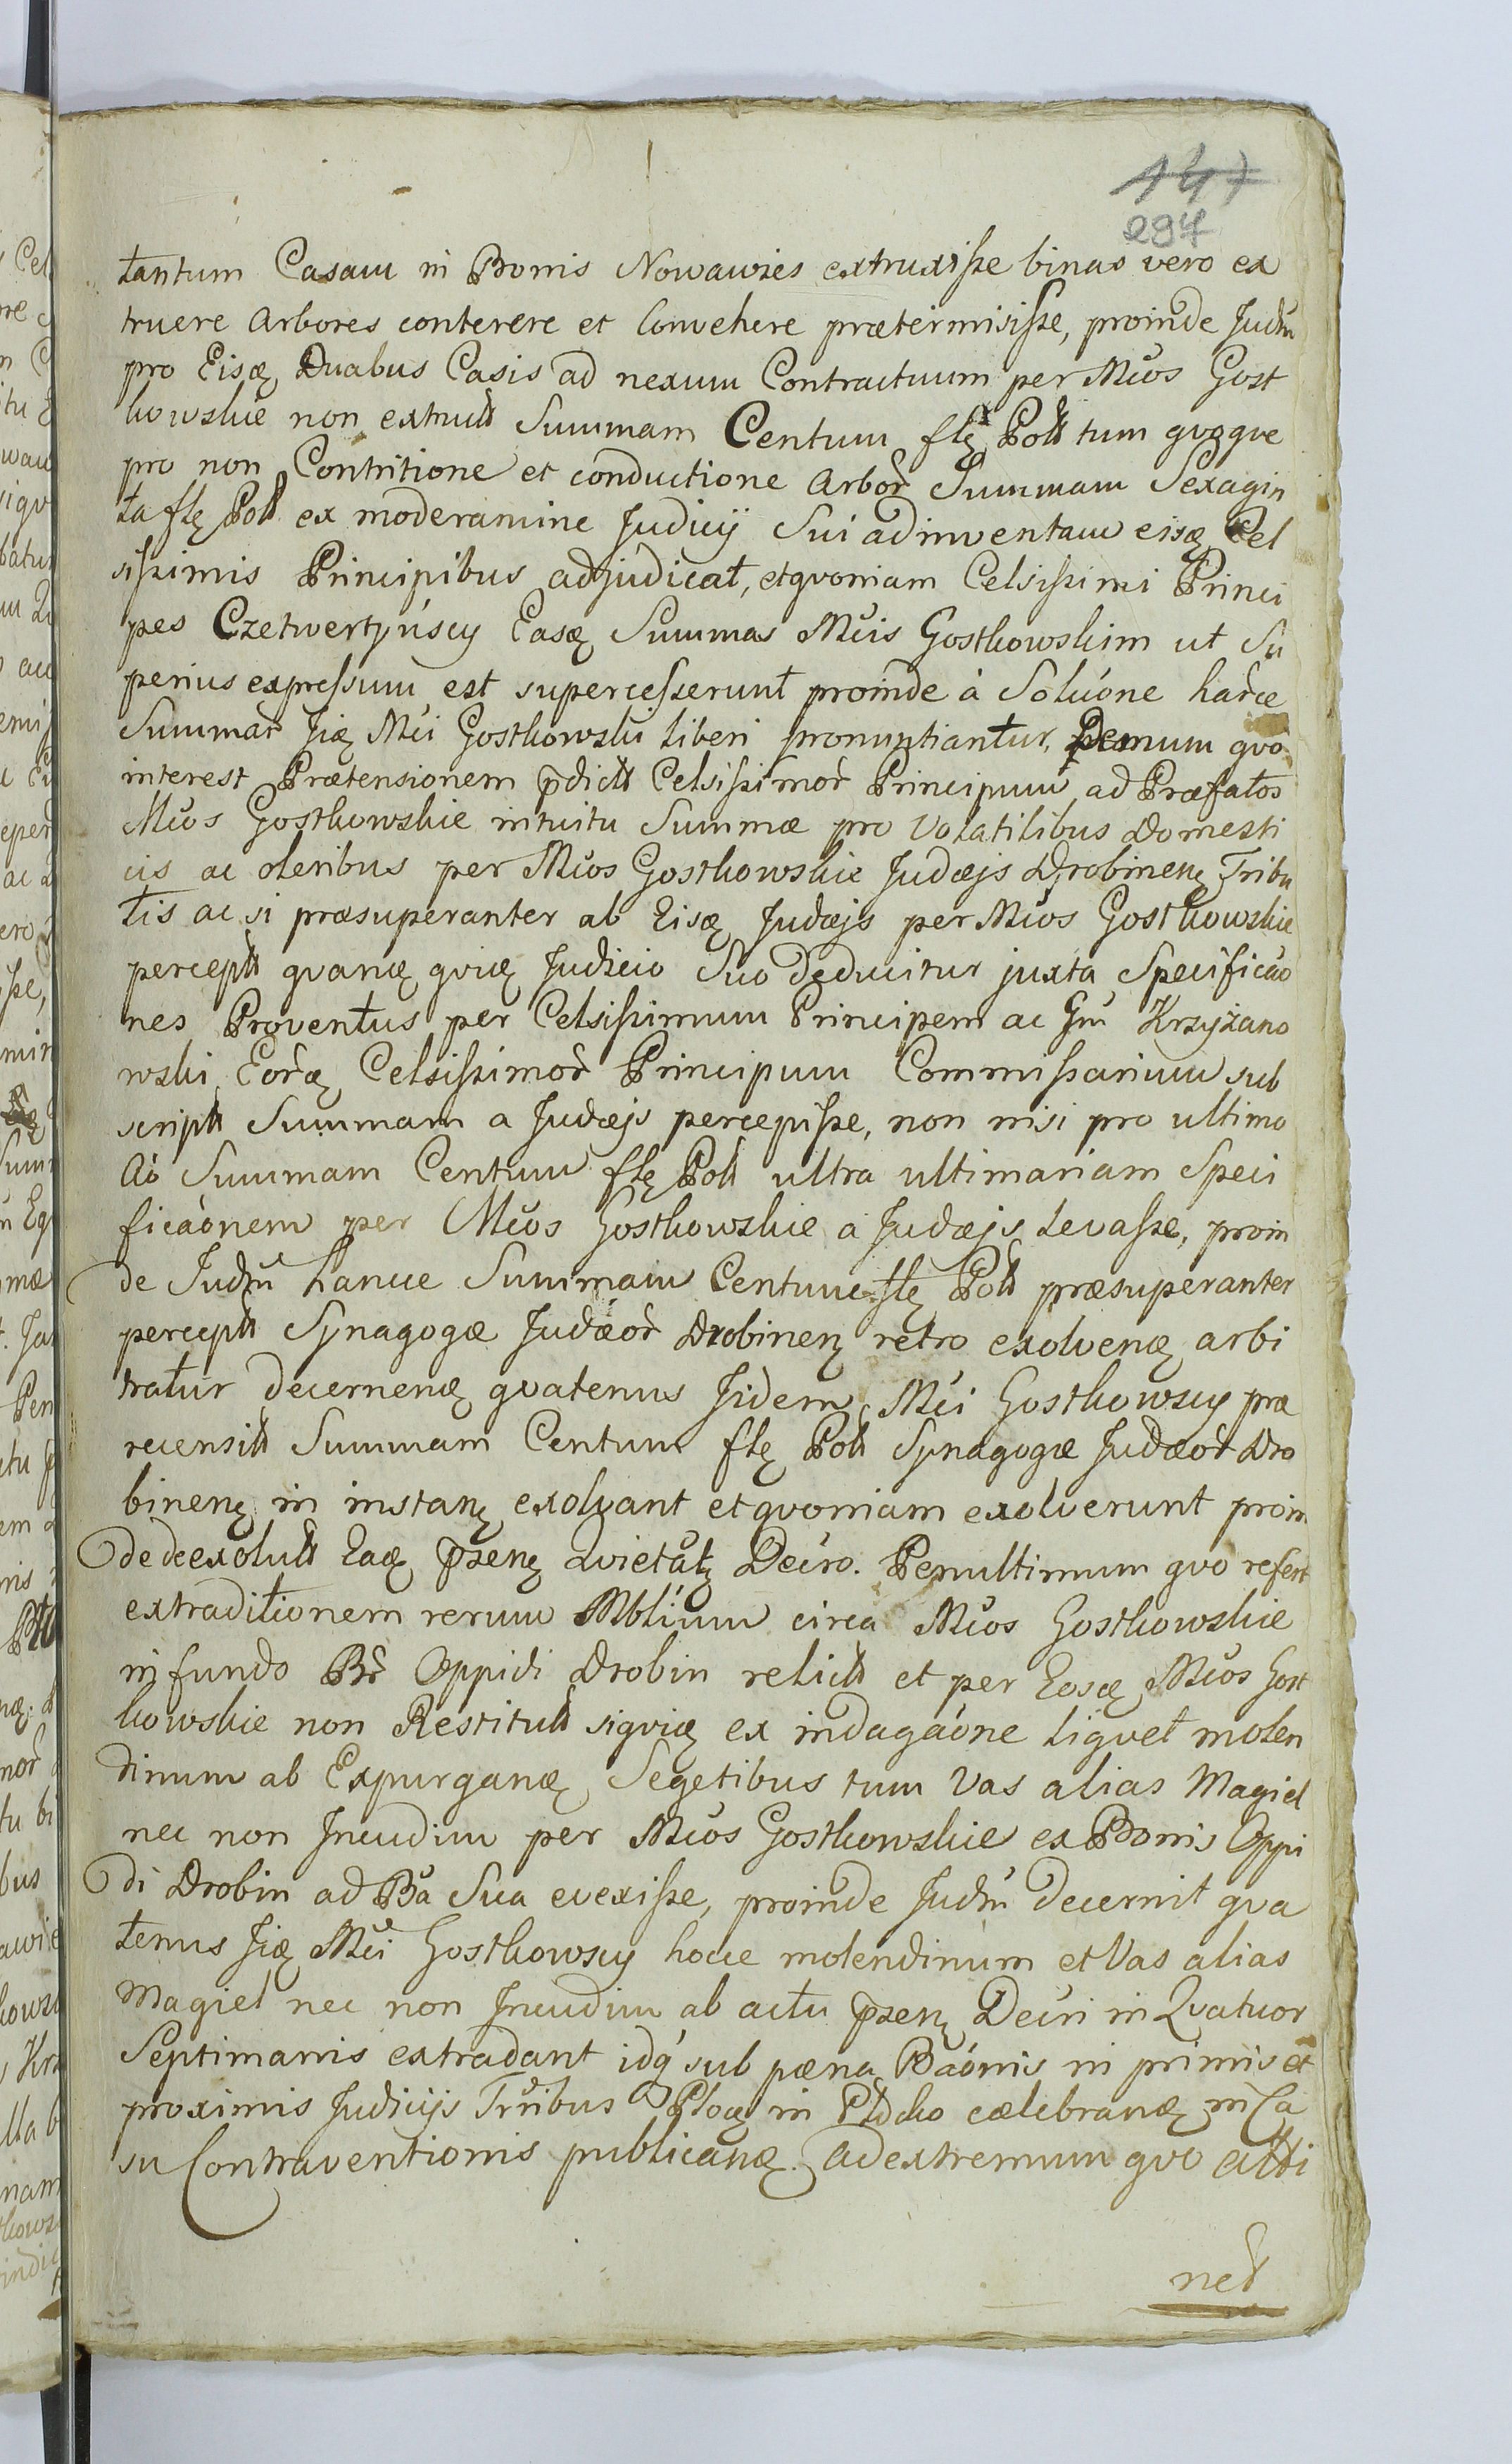 147
297
tantum Casam in Bonis Nowawies extruxisse binas vero ex
truere Arbores conterere et Convehere prætermisisse, proinde Judm
pro Eisq Duabus Casis ad nexum Contractuum per Mcos Gost
kowskie non extruct Summam Centum flę Poll tum qvoqve
pro non Contritione et conductione Arbor Summam Sexagin
ta flę Poll ex moderamine Judicÿ Sui adinventam eisq Cel
sissimis Principibus adjudicat, et qvoniam Celsissimi Princi
pes Czetwertyńscy Easq Summas Mcis Gostkowskim ut Su
perius expressum est supercesserunt proinde á Solucone harce
Summar Jiq Mci Gostkowski liberi pronuntiantur, Demum qvo
interest Prætensionem pdict Celsissimor Principum ad Præfatos
Mcos Gostkowskie intuitu Summæ pro Volatilibus Domesti
cis ac oleribus per Mcos Gostkowskie Judæjs Drobinenę Tribu
tis ac si præsuperanter ab Eisq Judæjs per Mcos Gostkowskie
percept qvanq qviq Judicio Suo deducitur juxta Specificao
nes Proventus per Celsissimum Principem ac Gm Krzyżano
wski Eorq Celsissimor Principum Commissarium sub
script Summam a Judæjs percepisse, non nisi pro ultimo
Ao Summam Centum flę Poll ultra ultimariam Speci
ficaonem per Mcos Gostkowskie a Judæjs Levasse, proin
de Judm hance Summam Centum flę Poll præsuperanter
percept Synagogæ Judæor Drobinenę retro exolvenq arbi
tratur decernenq qvatenus Jidem Mci Gostkowscy præ
recensit Summam Centum flę Poll Synagogæ Judæor Dro
binenę in instanę exolvant et qvoniam exolverunt proin
de de exolut Eaq pzenę Qvietatę Decro. Penultimum qvo refert
extraditionem rerum Mblium circa Mcos Gostkowskie
in fundo Br Oppidi Drobin relict et per Eosq Mcos Gost
kowskie non Restitut siqviq ex indagaone liqvet molen
dinum ab Expurganq Segetibus tum Vas alias Magiel
nec non Incudim per Mcos Gostkowskie ex Bonis Oppi
di Drobin ad Ba Sua evexisse, proinde Judm decernit qva
tenus Jiq Mci Gostkowscy hocce molendinum et Vas alias
Magiel nec non Incudim ab actu pzenę Decri in Qvatuor
Septimanis extradant idq sub pæna Baonis in primis et
proximis Judicÿs Trlibus Plocę in Płocko cælebranq in Ca
su Contraventionis publicanq. Ad extremum qvo atti
net